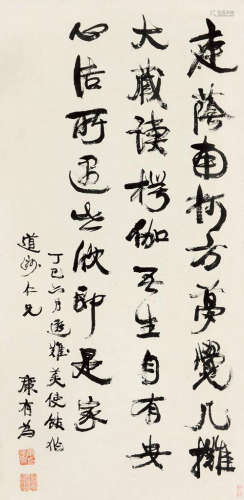 走蔭南柯方夢覺几攤
大藏讀楞伽吾生自有安
心法所遇安然即是家
丁巳六月避難美使館作
道沙仁兄
康有為